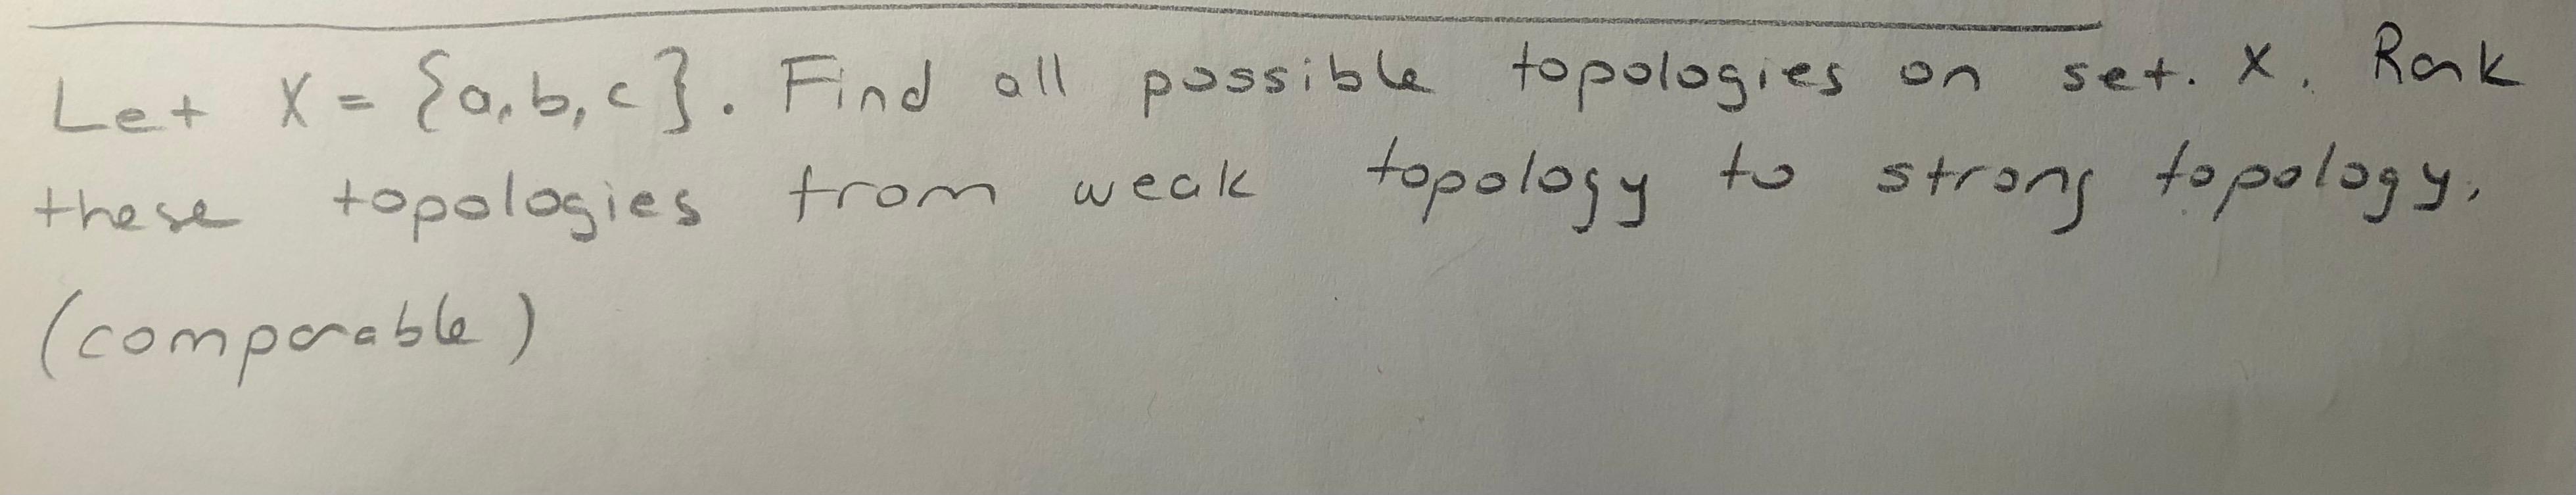 Let X = {a, b, c}. Find all possible topologies on set. X. Rank
these topologies from weak topology to strong topology.
(comparable)